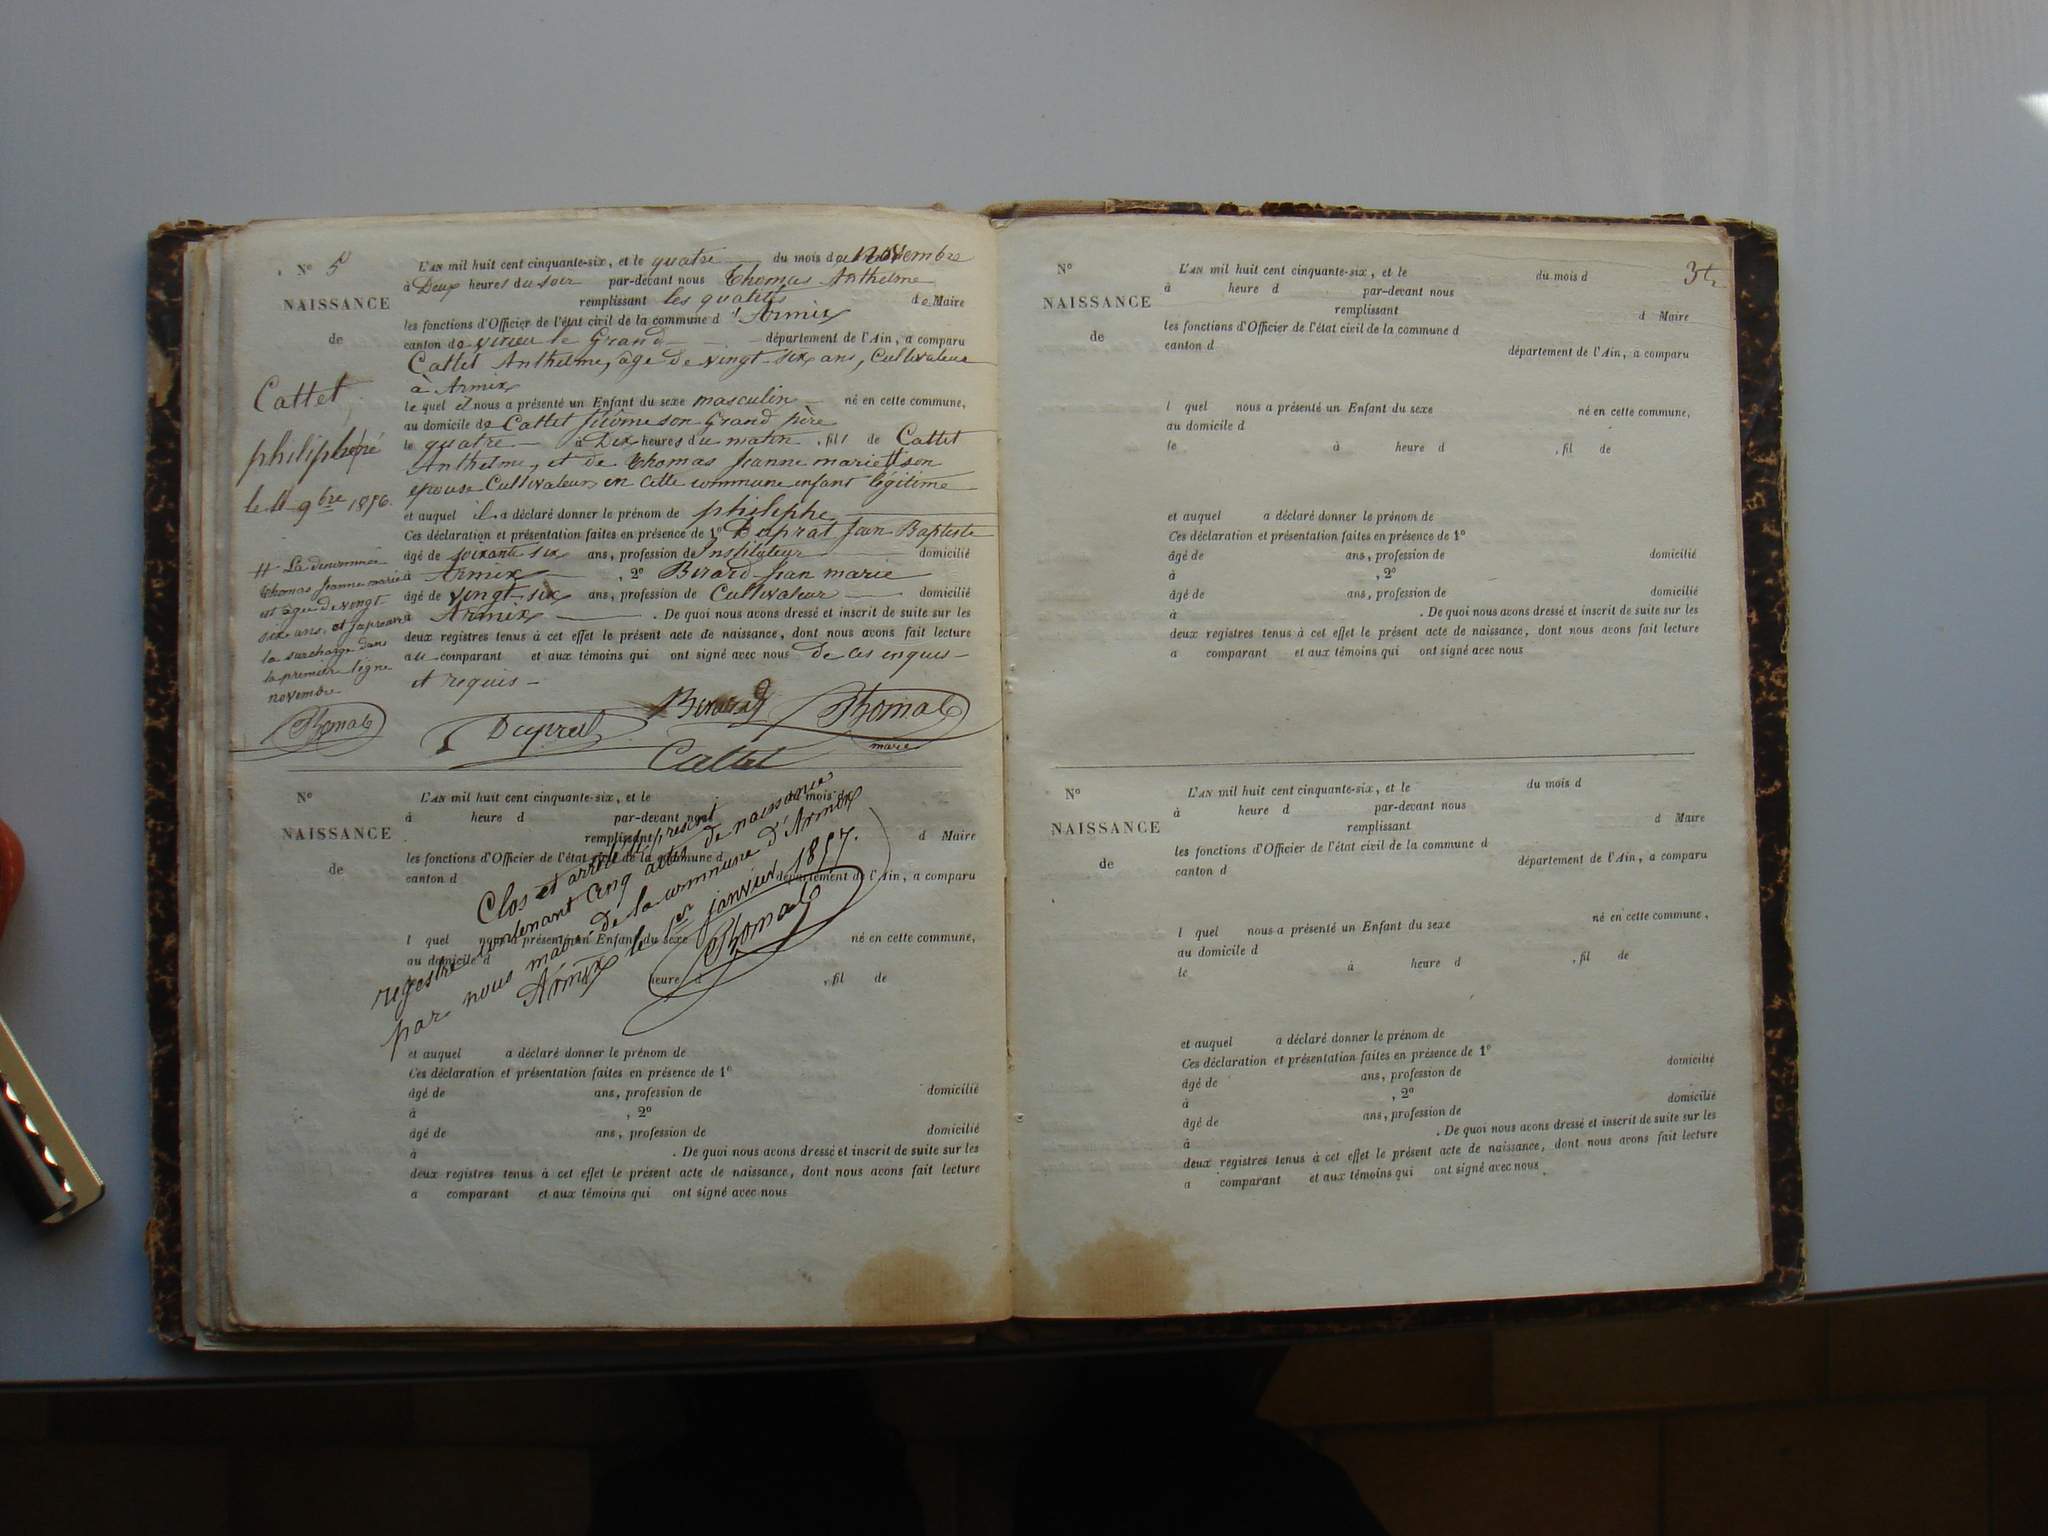 N° 5
NAISSANCE
de
Cattet
philiphe, né
le 4 9bre 1856.
L'AN mil huit cent cinquante-six, et le quatre du mois de novembre
à Deux heures du soir par-devant nous Thomas Anthelme
remplissant les qualités de Maire
les fonctions d'Officier de l'état civil de la commune d'Armix
canton de virieu le Grand département de l'Ain, a comparu
Cattet Anthelme, âgé de vingt-six ans, Cultivateur
à Armix
le quel il nous a présenté un Enfant du sexe masculin né en cette commune,
au domicile de Cattet Jérôme son Grand père
le quatre à Dix heures du matin, fils de Cattet
Anthelme, et de Thomas Jeanne marie # son
épouse Cultivateurs en cette commune enfant légitime
et auquel il a déclaré donner le prénom de philiphe
Ces déclaration et présentation faites en présence de 1° Duprat Jean Baptiste
âgé de soixante six ans, profession de Instituteur domicilié
à Armix, 2° Berard Jean marie
âgé de vingt-six ans, profession de Cultivateur domicilié
à Armix. De quoi nous avons dressé et inscrit de suite sur les
deux registres tenus à cet effet le présent acte de naissance, dont nous avons fait lecture
au comparant et aux témoins qui ont signé avec nous de ces enquis
et requis
# La denommée
Thomas Jeanne marie
est âgée de vingt
six ans, et japrouve
la surcharge dans
la première ligne
novembre
Thomas
Duprat Berard Thomas
maire
Cattet
N°
NAISSANCE
de
L'AN mil huit cent cinquante-six, et le du mois d
à heure d par-devant nous
remplissant d Maire
les fonctions d'Officier de l'état civil de la commune d
canton d département de l'Ain, a comparu
l quel nous a présenté un Enfant du sexe né en cette commune,
au domicile d
heure d , fil de
Clos et arrêté le présent
registre contenant cinq actes de naissance
par nous maire de la commune d'Armix
Armix le 1er janvier 1857.
Thomas
et auquel a déclaré donner le prénom de
Ces déclaration et présentation faites en présence de 1°
âgé de ans, profession de domicilié
à , 2°
âgé de ans, profession de domicilié
à . De quoi nous avons dressé et inscrit de suite sur les
deux registres tenus à cet effet le présent acte de naissance, dont nous avons fait lecture
a comparant et aux témoins qui ont signé avec nous
N°
NAISSANCE
de
L'AN mil huit cent cinquante-six, et le du mois d
à heure d par-devant nous
remplissant d Maire
les fonctions d'Officier de l'état civil de la commune d
canton d département de l'Ain, a comparu
l quel nous a présenté un Enfant du sexe né en cette commune,
au domicile d
le à heure d , fil de
et auquel a déclaré donner le prénom de
Ces déclaration et présentation faites en présence de 1°
âgé de ans, profession de domicilié
à , 2°
âgé de ans, profession de domicilié
à . De quoi nous avons dressé et inscrit de suite sur les
deux registres tenus à cet effet le présent acte de naissance, dont nous avons fait lecture
a comparant et aux témoins qui ont signé avec nous
N°
NAISSANCE
de
L'AN mil huit cent cinquante-six, et le du mois d
à heure d par-devant nous
remplissant d Maire
les fonctions d'Officier de l'état civil de la commune d
canton d département de l'Ain, a comparu
l quel nous a présenté un Enfant du sexe né en cette commune,
au domicile d
le à heure d , fil de
et auquel a déclaré donner le prénom de
Ces déclaration et présentation faites en présence de 1°
âgé de ans, profession de domicilié
à , 2°
âgé de ans, profession de domicilié
à . De quoi nous avons dressé et inscrit de suite sur les
deux registres tenus à cet effet le présent acte de naissance, dont nous avons fait lecture
a comparant et aux témoins qui ont signé avec nous